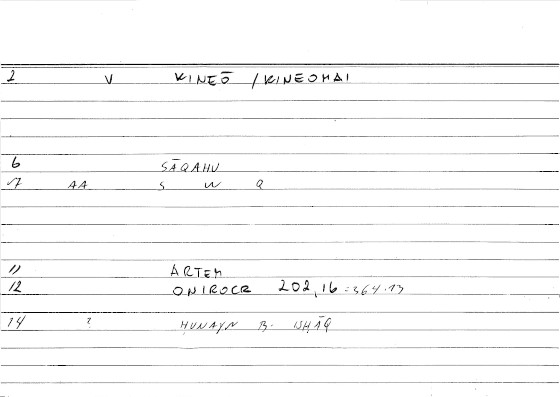 2 V KINEŌ / KINEOMAI
6 SĀQAHU
7 AA S W Q
11 ARTEM
12 ONIROCR 202,16 = 364.13
14 ? HUNAYN B. ISHĀQ